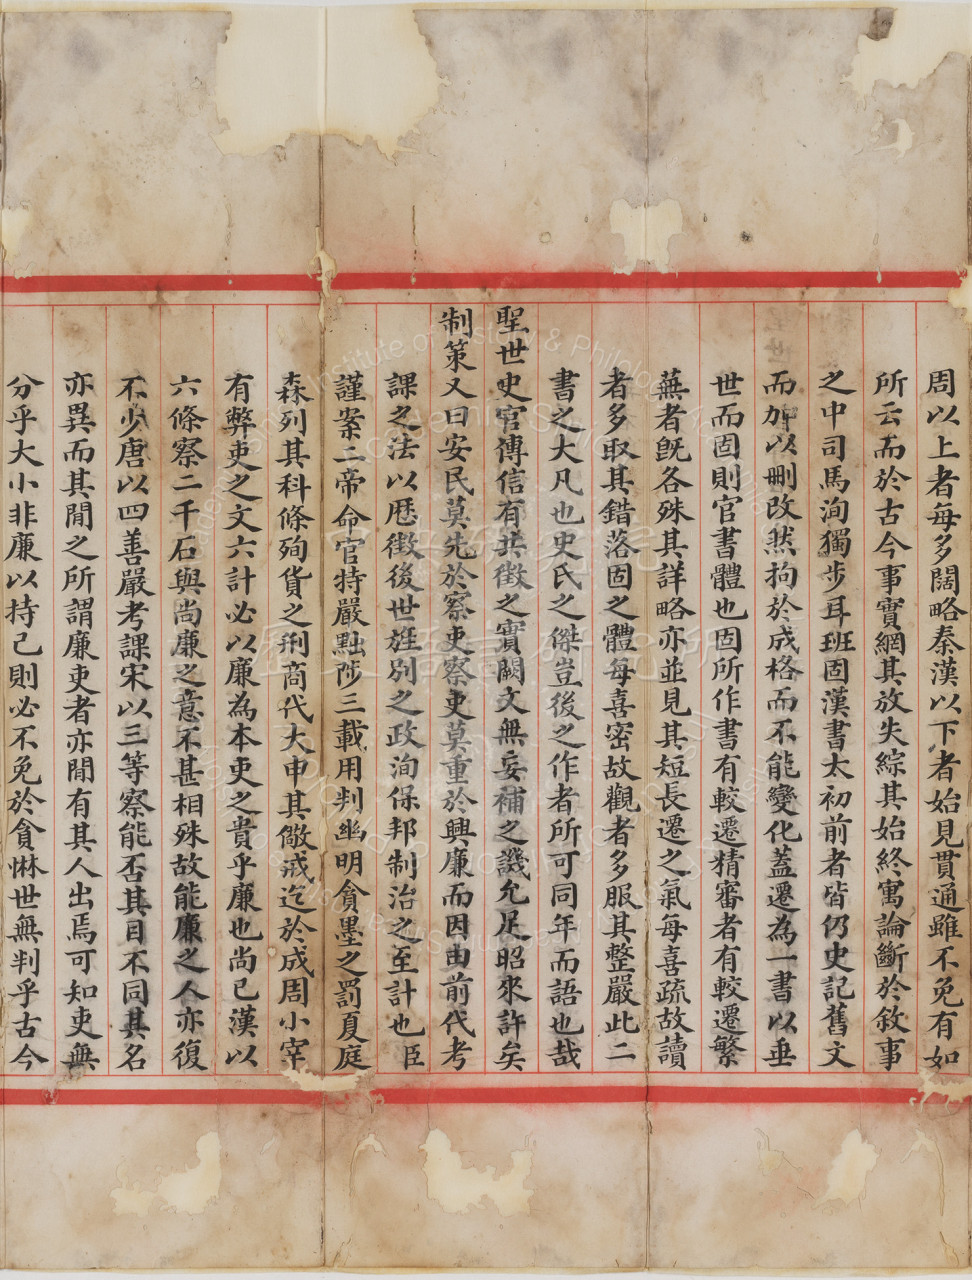 周以上者每多闊略秦漢以下者始見貫通雖不免有如
所云而於古今事實網其放失綜其始終寓論斷於敘事
之中司馬洵獨步耳班固漢書太初前者皆仍史記舊文
而加以刪改然拘於成格而不能變化蓋遷為一書以垂
世而固則官書體也固所作書有較遷精審者有較遷繁
蕪者旣各殊其詳略亦並見其短長遷之氣每喜疏故讀
者多取其錯落固之體每喜密故觀者多服其整嚴此二
書之大凡也史氏之傑豈後之作者所可同年而語也哉
聖世史官傳信有共徵之實闕文無妄補之譏允足昭來許矣
制策又曰安民莫先於察吏察吏莫重於興廉而因由前代考
課之法以厯徵後世旌別之政洵保邦制治之至計也臣
謹案二帝命官特嚴黜陟三載用判幽明貪墨之罰夏庭
森列其科條殉貨之刑商代大申其儆戒迄於成周小宰
有弊吏之文六計必以廉為本吏之貴乎廉也尚已漢以
六條察二千石與尚廉之意不甚相殊故能廉之人亦復
不少唐以四善嚴考課宋以三等察能否其目不同其名
亦異而其間之所謂廉吏者亦間有其人出焉可知吏無
分乎大小非廉以持己則必不免於貪惏世無判乎古今